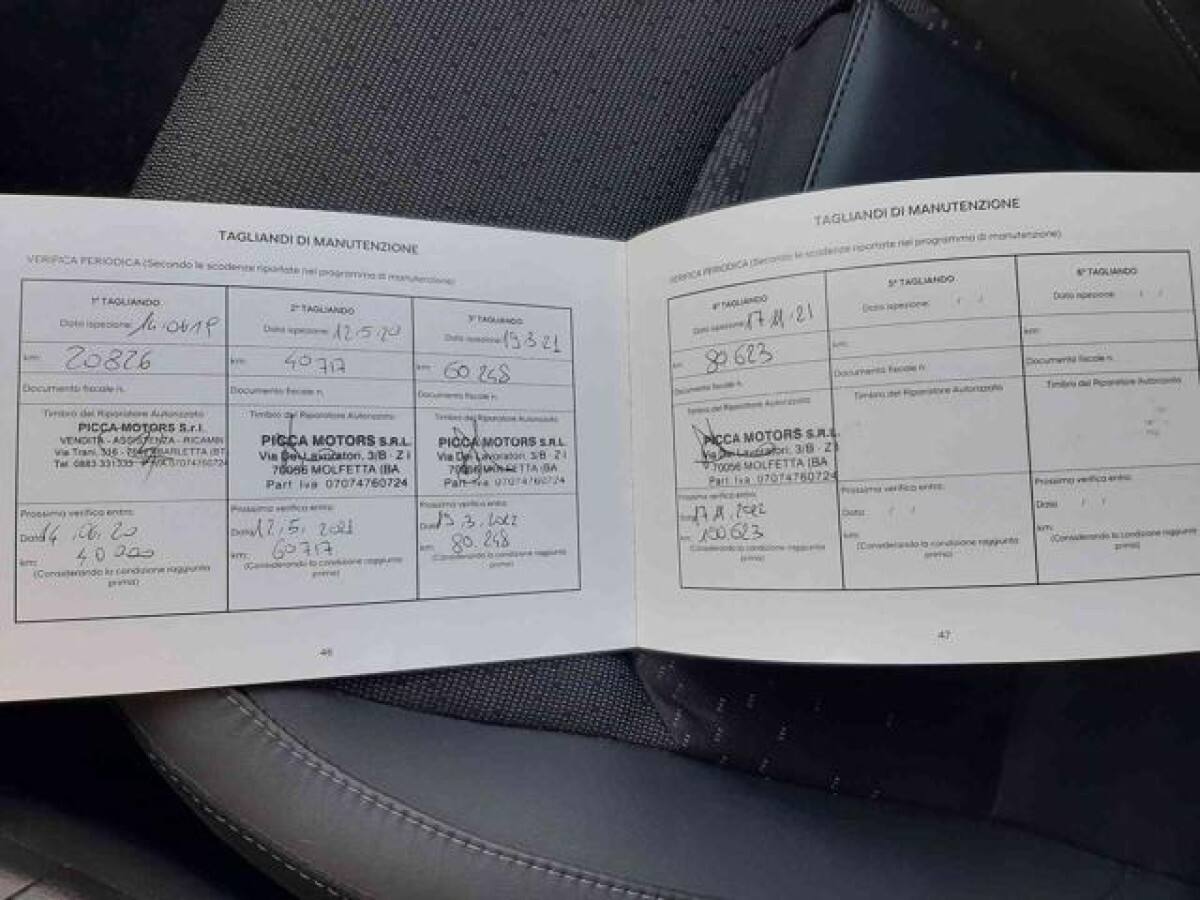 TAGLIANDI DI MANUTENZIONE
VERIFICA PERIODICA (Secondo le scadenze riportate nel programma di manutenzione)
1° TAGLIANDO
Data ispezione: 14.06.19
km: 20826
Documento fiscale n.
Timbro del Riparatore Autorizzato
PICCA MOTORS S.r.l.
VENDITA - ASSISTENZA - RICAMBI
Via Trani, 336 - BARLETTA (BT
Tel. 0883 331335 07074760724
Prossima verifica entro:
Data 14.06.20
km: 40000
(Considerando la condizione raggiunta
prima)
2° TAGLIANDO
Data ispezione: 12.5.20
km: 40717
Documento fiscale n.
Timbro del Riparatore Autorizzato
PICCA MOTORS S.R.L.
Via Dei Lavoratori, 3/B - Z I
70056 MOLFETTA (BA
Part Iva 07074760724
Prossima verifica entro:
Data 12.5.2021
km: 60717
(Considerando la condizione raggiunta
prima)
3° TAGLIANDO
Data ispezione: 19.3.21
km: 60248
Documento fiscale n.
Timbro del Riparatore Autorizzato
PICCA MOTORS S.R.L.
Via Dei Lavoratori, 3/B - Z I
70056 MOLFETTA (BA
Part Iva 07074760724
Prossima verifica entro:
Data 19.3.2022
km: 80.248
(Considerando la condizione raggiunta
prima)
46
TAGLIANDI DI MANUTENZIONE
VERIFICA PERIODICA (Secondo le scadenze riportate nel programma di manutenzione)
4° TAGLIANDO
Data ispezione: 17.11.21
km: 80623
Documento fiscale n.
Timbro del Riparatore Autorizzato
PICCA MOTORS S.R.L.
Via Dei Lavoratori, 3/B - Z I
70056 MOLFETTA (BA
Part Iva 07074760724
Prossima verifica entro:
Data 17.11.2022
km: 100623
(Considerando la condizione raggiunta
prima)
5° TAGLIANDO
Data ispezione: / /
km:
Documento fiscale n.
Timbro del Riparatore Autorizzato
Prossima verifica entro:
Data: / /
km:
(Considerando la condizione raggiunta
prima)
6° TAGLIANDO
Data ispezione: / /
km:
Documento fiscale n.
Timbro del Riparatore Autorizzato
Prossima verifica entro:
Data / /
km:
(Considerando la condizione raggiunta
prima)
47